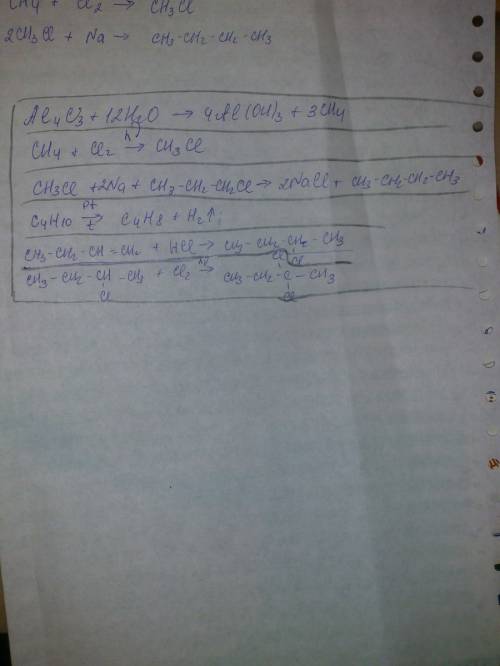 CH4 + Cl2 → CH3Cl
2CH3Cl + Na → CH3-CH2-CH2-CH3
Al4C3 + 12H2O → 4Al(OH)3 + 3CH4
CH4 + Cl2 hν→ CH3Cl
CH3Cl + 2Na + CH3-CH2-CH2Cl → 2NaCl + CH3-CH2-CH2-CH3
C4H10 Pt→t C4H8 + H2↑;
CH3-CH2-CH=CH2 + HCl → CH3-CH2-CH-CH3
Cl
Cl
CH3-CH2-CH-CH3 + Cl2 hν→ CH3-CH2-C-CH3
Cl Cl